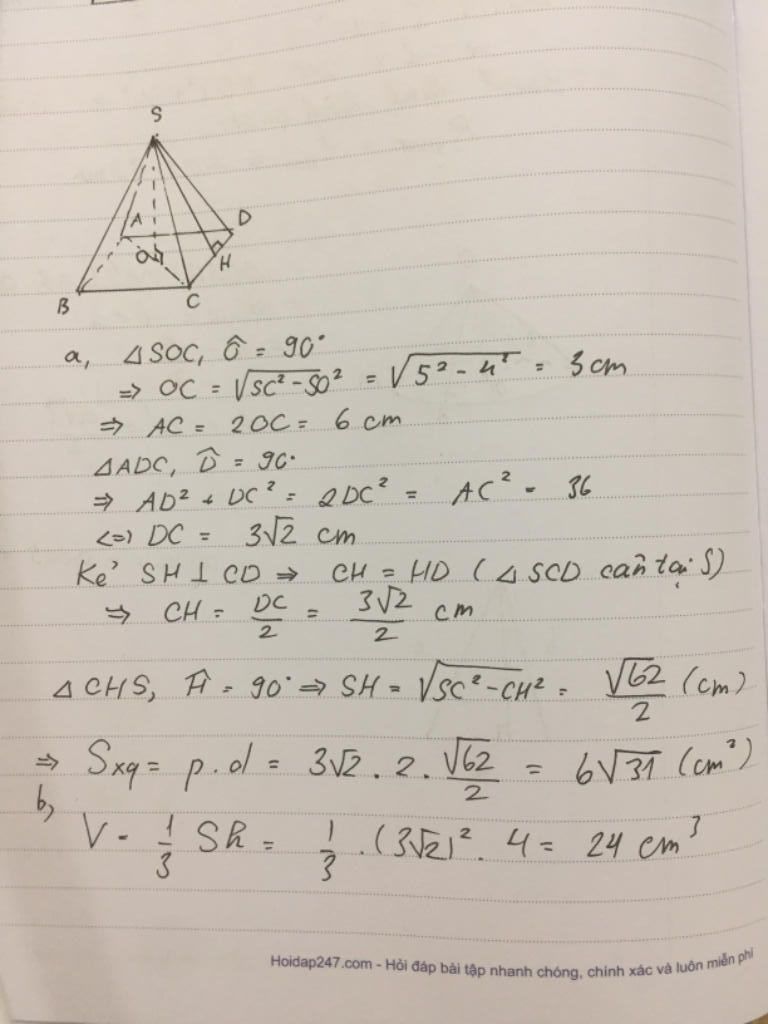 S
A
D
O
H
B
C
a, △SOC, Ô = 90°
⇒ OC = √(SC² - SO²) = √(5² - 4²) = 3 cm
⇒ AC = 2OC = 6 cm
△ADC, D̂ = 90°
⇒ AD² + DC² = 2DC² = AC² = 36
<=> DC = 3√2 cm
Kẻ SH ⊥ CD ⇒ CH = HD (△SCD cân tại S)
⇒ CH = DC/2 = 3√2/2 cm
△CHS, Ĥ = 90° ⇒ SH = √(SC² - CH²) = √62/2 (cm)
⇒ Sxq = p.d = 3√2 . 2 . √62/2 = 6√31 (cm²)
b,
V = 1/3 Sh = 1/3 . (3√2)² . 4 = 24 cm³
Hoidap247.com - Hỏi đáp bài tập nhanh chóng, chính xác và luôn miễn phí